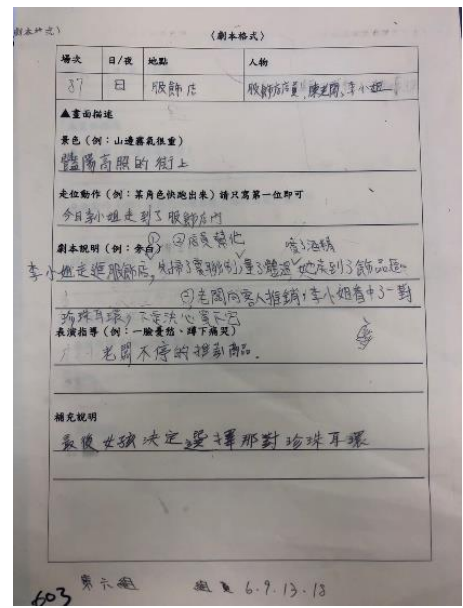 〈劇本格式〉
場次 日/夜 地點 人物
37 日 服飾店 服飾店店員、陳老闆、李小姐
▲畫面描述
景色(例：山邊霧氣很重)
豔陽高照的街上
走位動作(例：某角色快跑出來)請只寫第一位即可
今日李小姐走到了服飾店內
劇本說明(例：旁白)
① ②店員幫他 噴了酒精
李小姐走進服飾店，先掃了實聯制、量了體溫 她來到了飾品區
老闆向客人推銷，李小姐看中了一對
珍珠耳環，
表演指導(例：一臉憂愁、蹲下痛哭)
老闆不停的推動商品.
補充說明
最後女孩決定選擇那對珍珠耳環
603 第六組 組員 6.9.13.18